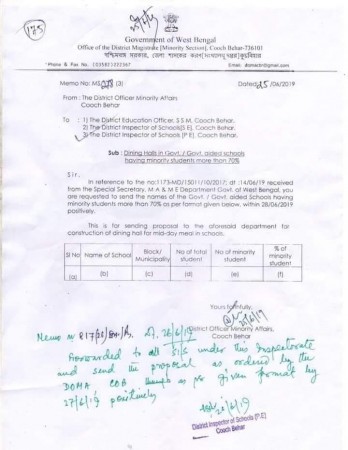 175
Government of West Bengal
Office of the District Magistrate [Minority Section], Cooch Behar-736101
Phone & Fax No.
Memo No: MS/ (3)
Dated: 25/06/2019
From : The District Officer Minority Affairs
Cooch Behar
To : 1) The District Education Officer, S S M, Cooch Behar.
2) The District Inspector of Schools(S E), Cooch Behar.
3) The District Inspector of Schools [P E], Cooch Behar.
Sub : Dining Halls in Govt. / Govt. aided schools
having minority students more than 70%
Sir,
In reference to the no:1173-MD/15011/10/2017; dt :14/06/19 received
from the Special Secretary, M A & M E Department Govt. of West Bengal, you
are requested to send the names of the Govt. / Govt. aided Schools having
minority students more than 70% as per format given below, within 28/06/2019
positively.
This is for sending proposal to the aforesaid department for
construction of dining hall for mid-day meal in schools.
Sl No Name of School Block/ Municipality No of total student No of minority student % of minority student
(a) (b) (c) (d) (e) (f)
Yours faithfully,
District Officer Minority Affairs,
Cooch Behar
Memo no
26/6/19
Forwarded to all SIS under this Inspectorate
and send the proposal as ordered by the
DOMA COB as per given format by
27/6/19 positively
District Inspector of Schools [P.E]
Cooch Behar